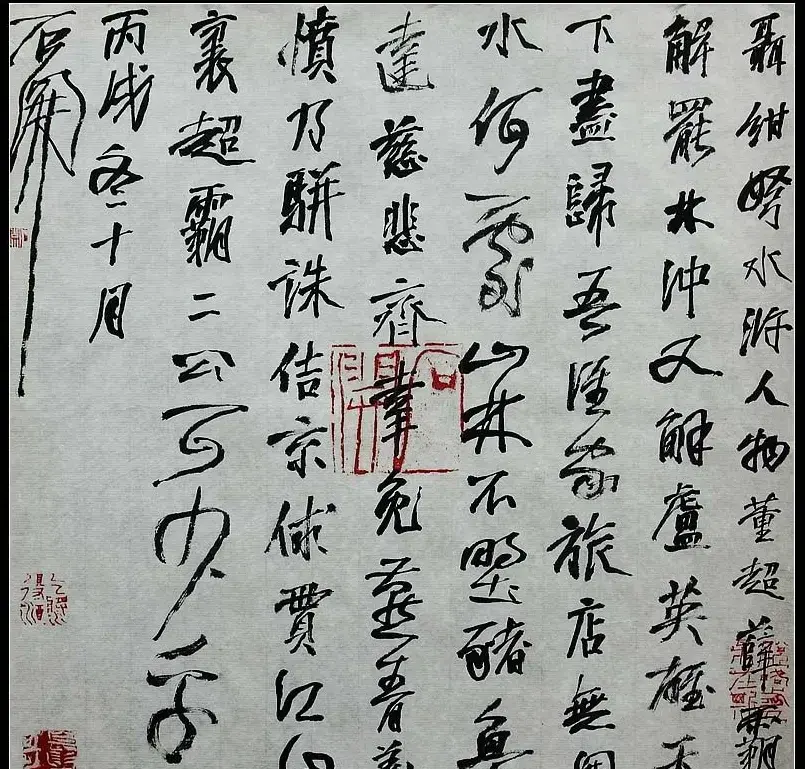 聶紺弩水滸人物董超薛霸
解罷林沖又解盧英雄天
下盡歸吾誰家旅店無開
水何處山林不野豬魚
達慈悲齊幸免燕青義
憤乃駢誅佶京俅貫江山
裏超霸二公可少乎
丙戌冬十月
石開